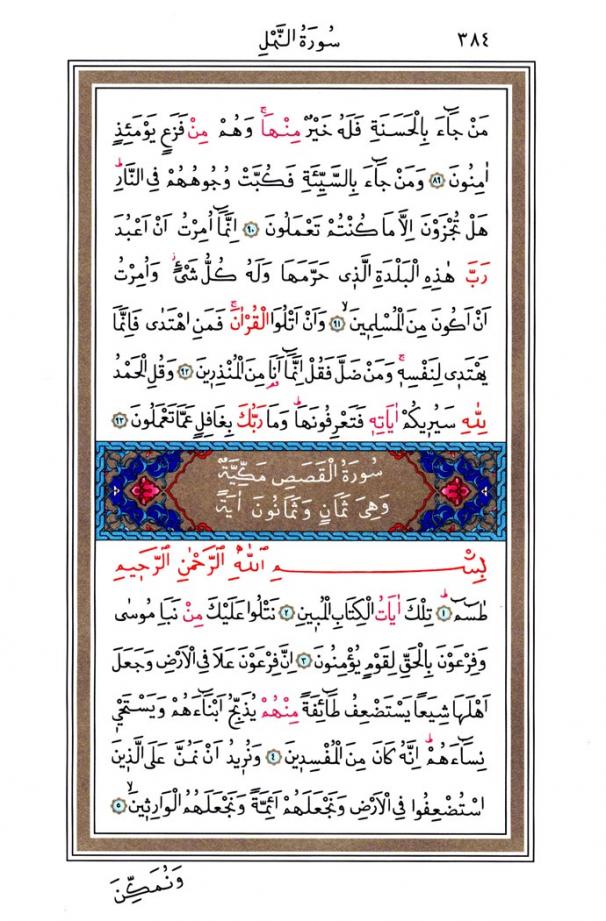 سُورَةُ النَّمْلِ ٣٨٤
مَنْ جَٓاءَ بِالْحَسَنَةِ فَلَهُ خَيْرٌ مِنْهَاۚ وَهُمْ مِنْ فَزَعٍ يَوْمَئِذٍ
اٰمِنُونَ ﴿٨٩﴾ وَمَنْ جَٓاءَ بِالسَّيِّئَةِ فَكُبَّتْ وُجُوهُهُمْ فِي النَّارِۜ
هَلْ تُجْزَوْنَ اِلَّا مَا كُنْتُمْ تَعْمَلُونَ ﴿٩٠﴾ اِنَّمَٓا اُمِرْتُ اَنْ اَعْبُدَ
رَبَّ هٰذِهِ الْبَلْدَةِ الَّذ۪ي حَرَّمَهَا وَلَهُ كُلُّ شَيْءٍۘ وَاُمِرْتُ
اَنْ اَكُونَ مِنَ الْمُسْلِم۪ينَۙ ﴿٩١﴾ وَاَنْ اَتْلُوَا الْقُرْاٰنَۚ فَمَنِ اهْتَدٰى فَاِنَّمَا
يَهْتَد۪ي لِنَفْسِه۪ۚ وَمَنْ ضَلَّ فَقُلْ اِنَّمَٓا اَنَا۬ مِنَ الْمُنْذِر۪ينَ ﴿٩٢﴾ وَقُلِ الْحَمْدُ
لِلّٰهِ سَيُر۪يكُمْ اٰيَاتِه۪ فَتَعْرِفُونَهَاۜ وَمَا رَبُّكَ بِغَافِلٍ عَمَّا تَعْمَلُونَ ﴿٩٣﴾
سُورَةُ الْقَصَصِ مَكِّيَّةٌ
وَهِيَ ثَمَانٍ وَثَمَانُونَ اٰيَةً
بِسْمِ اللّٰهِ الرَّحْمٰنِ الرَّح۪يمِ
طٰسٓمٓۜ ﴿١﴾ تِلْكَ اٰيَاتُ الْكِتَابِ الْمُب۪ينِ ﴿٢﴾ نَتْلُوا عَلَيْكَ مِنْ نَبَأِ مُوسٰى
وَفِرْعَوْنَ بِالْحَقِّ لِقَوْمٍ يُؤْمِنُونَ ﴿٣﴾ اِنَّ فِرْعَوْنَ عَلَا فِي الْاَرْضِ وَجَعَلَ
اَهْلَهَا شِيَعًا يَسْتَضْعِفُ طَٓائِفَةً مِنْهُمْ يُذَبِّحُ اَبْنَٓاءَهُمْ وَيَسْتَحْي۪
نِسَٓاءَهُمْۜ اِنَّهُ كَانَ مِنَ الْمُفْسِد۪ينَ ﴿٤﴾ وَنُر۪يدُ اَنْ نَمُنَّ عَلَى الَّذ۪ينَ
اسْتُضْعِفُوا فِي الْاَرْضِ وَنَجْعَلَهُمْ اَئِمَّةً وَنَجْعَلَهُمُ الْوَارِث۪ينَۙ ﴿٥﴾
وَنُمَكِّنَ